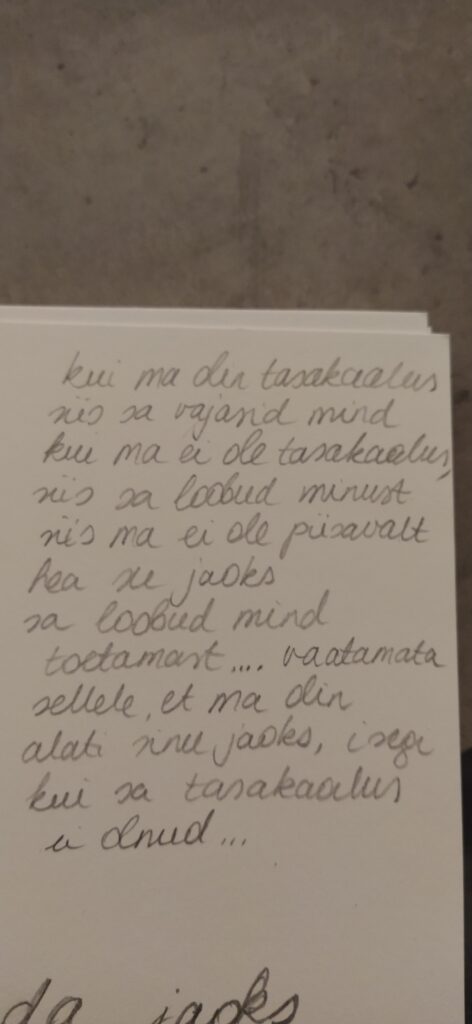 kui ma olin tasakaalus
siis sa vajasid mind
kui ma ei ole tasakaalus,
siis sa loobud minust
siis ma ei ole piisavalt
hea su jaoks
sa loobud mind
toetamast.... vaatamata
sellele, et ma olin
alati sinu jaoks, isegi
kui sa tasakaalus
ei olnud...
da jaoks